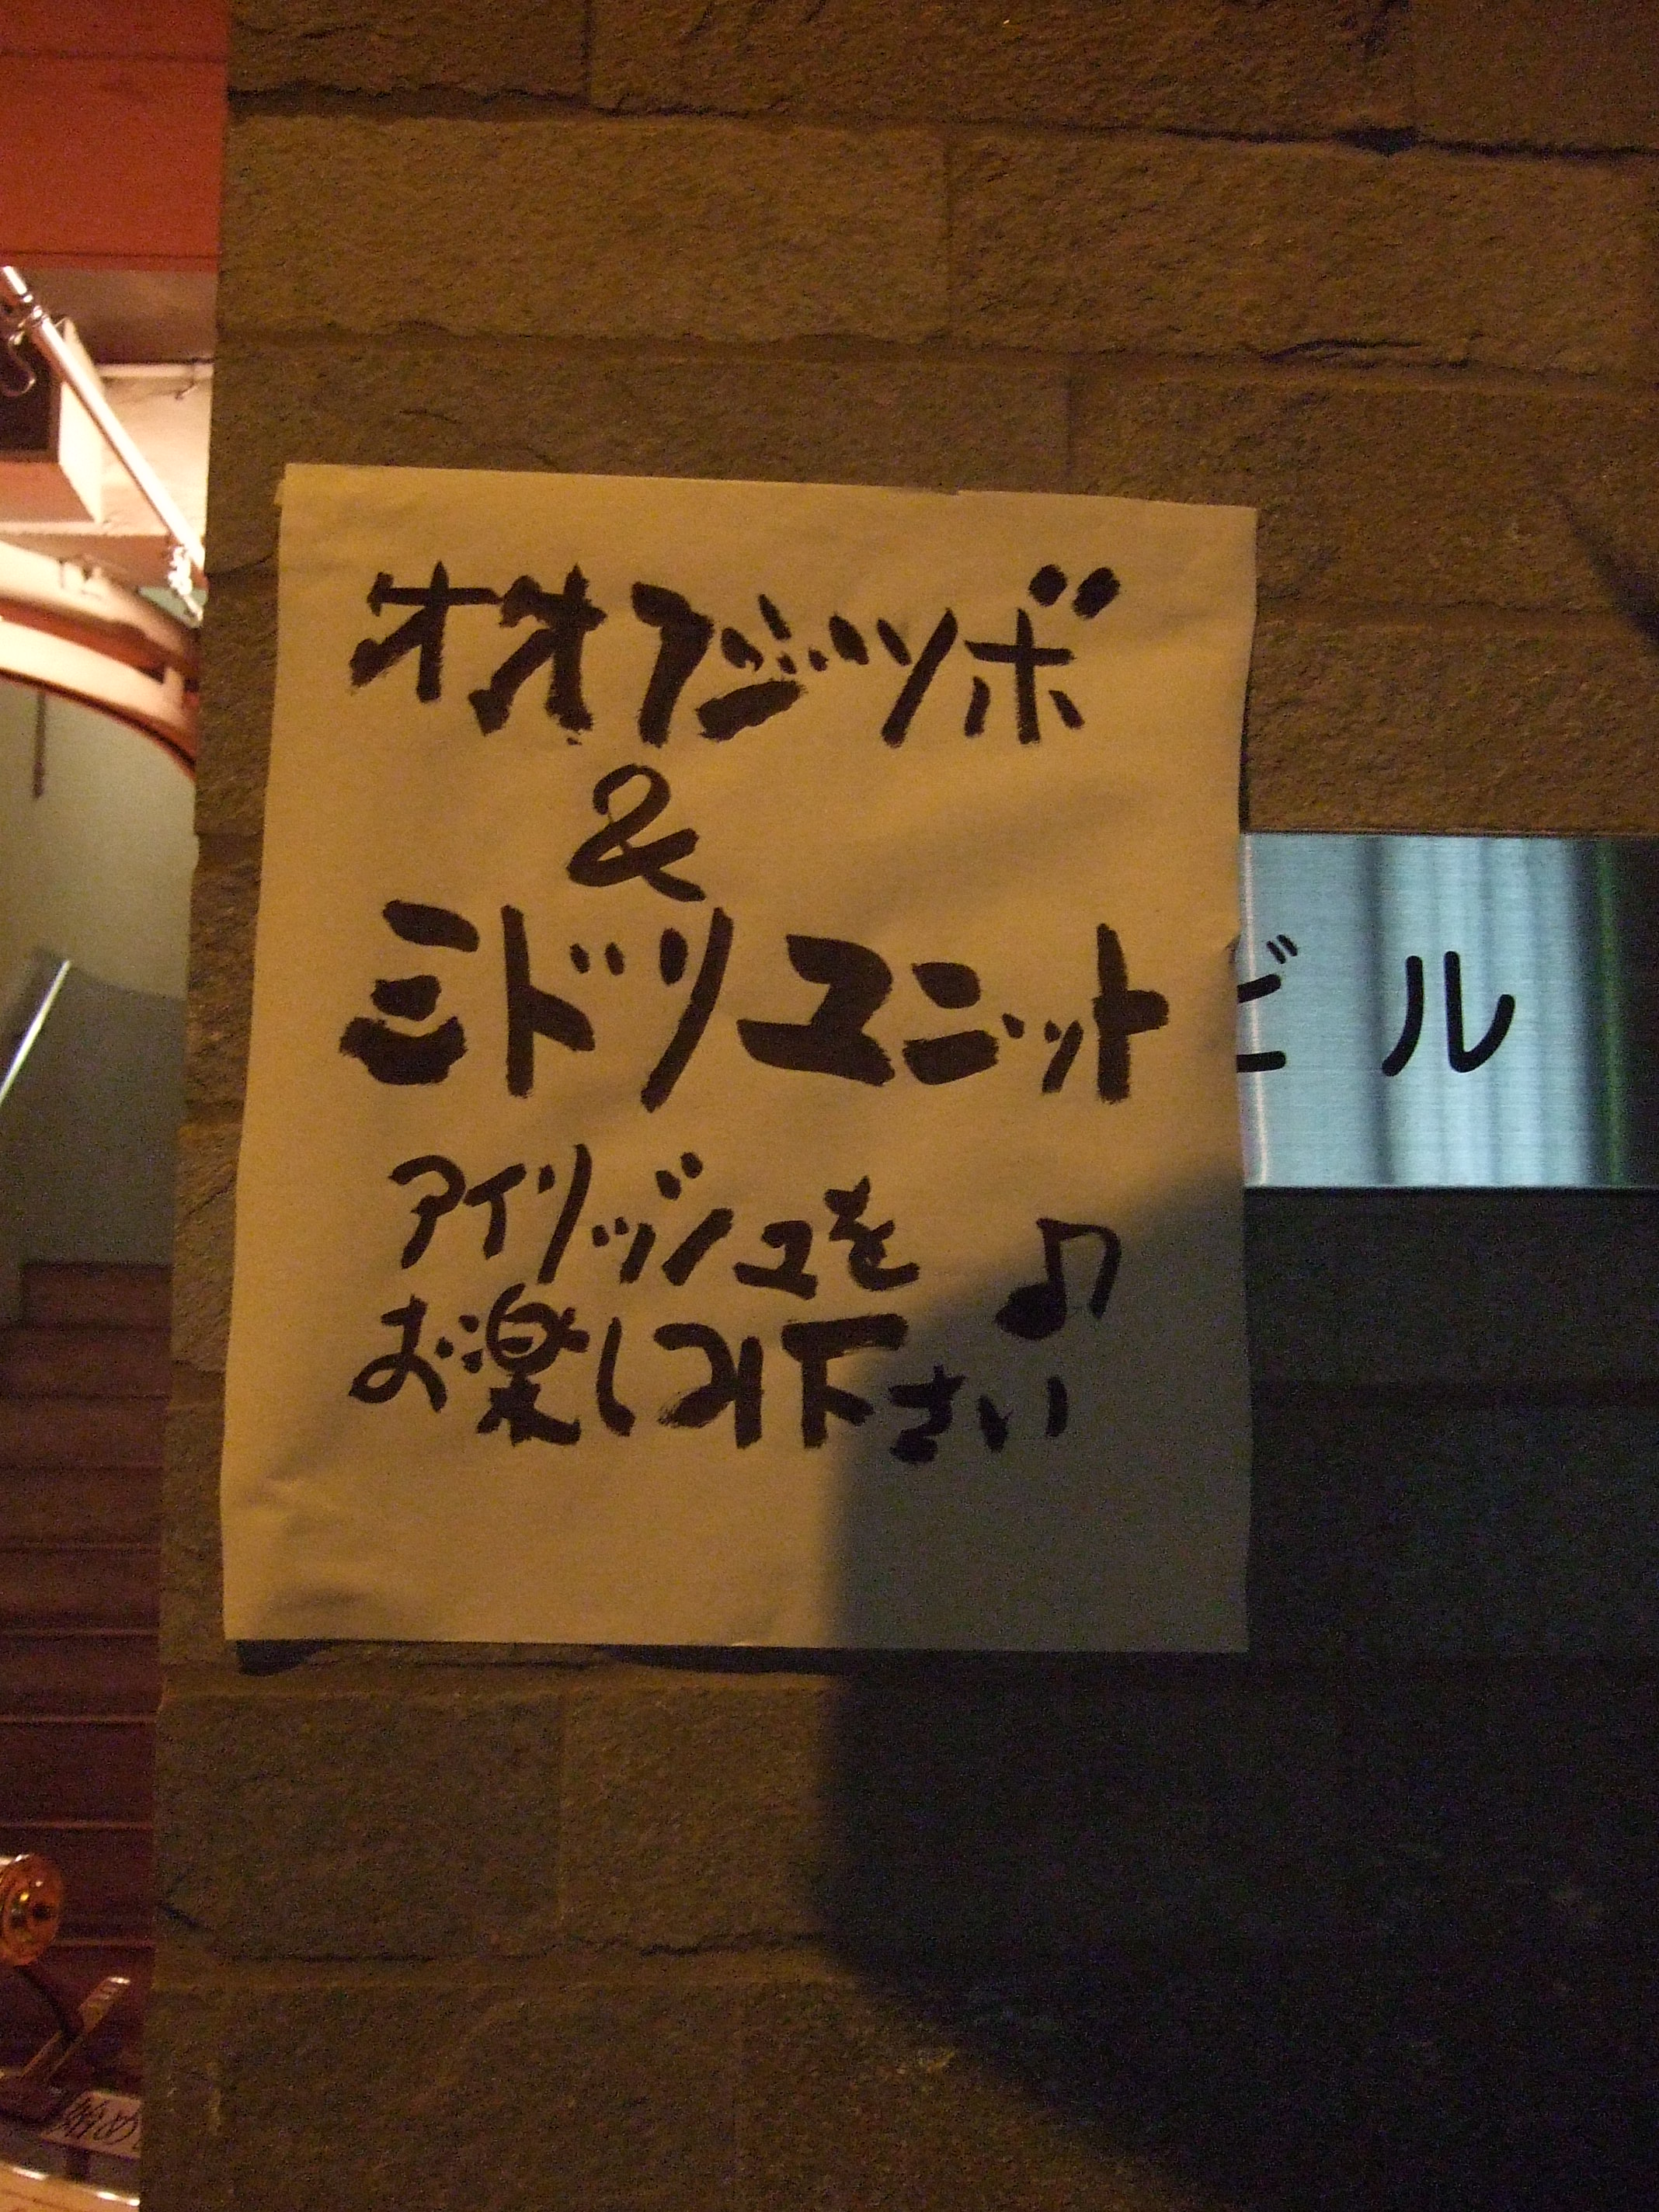 オオフジツボ
&
ミドリユニット
アイリッシュを
お楽しみ下さい♫
ビル
始め